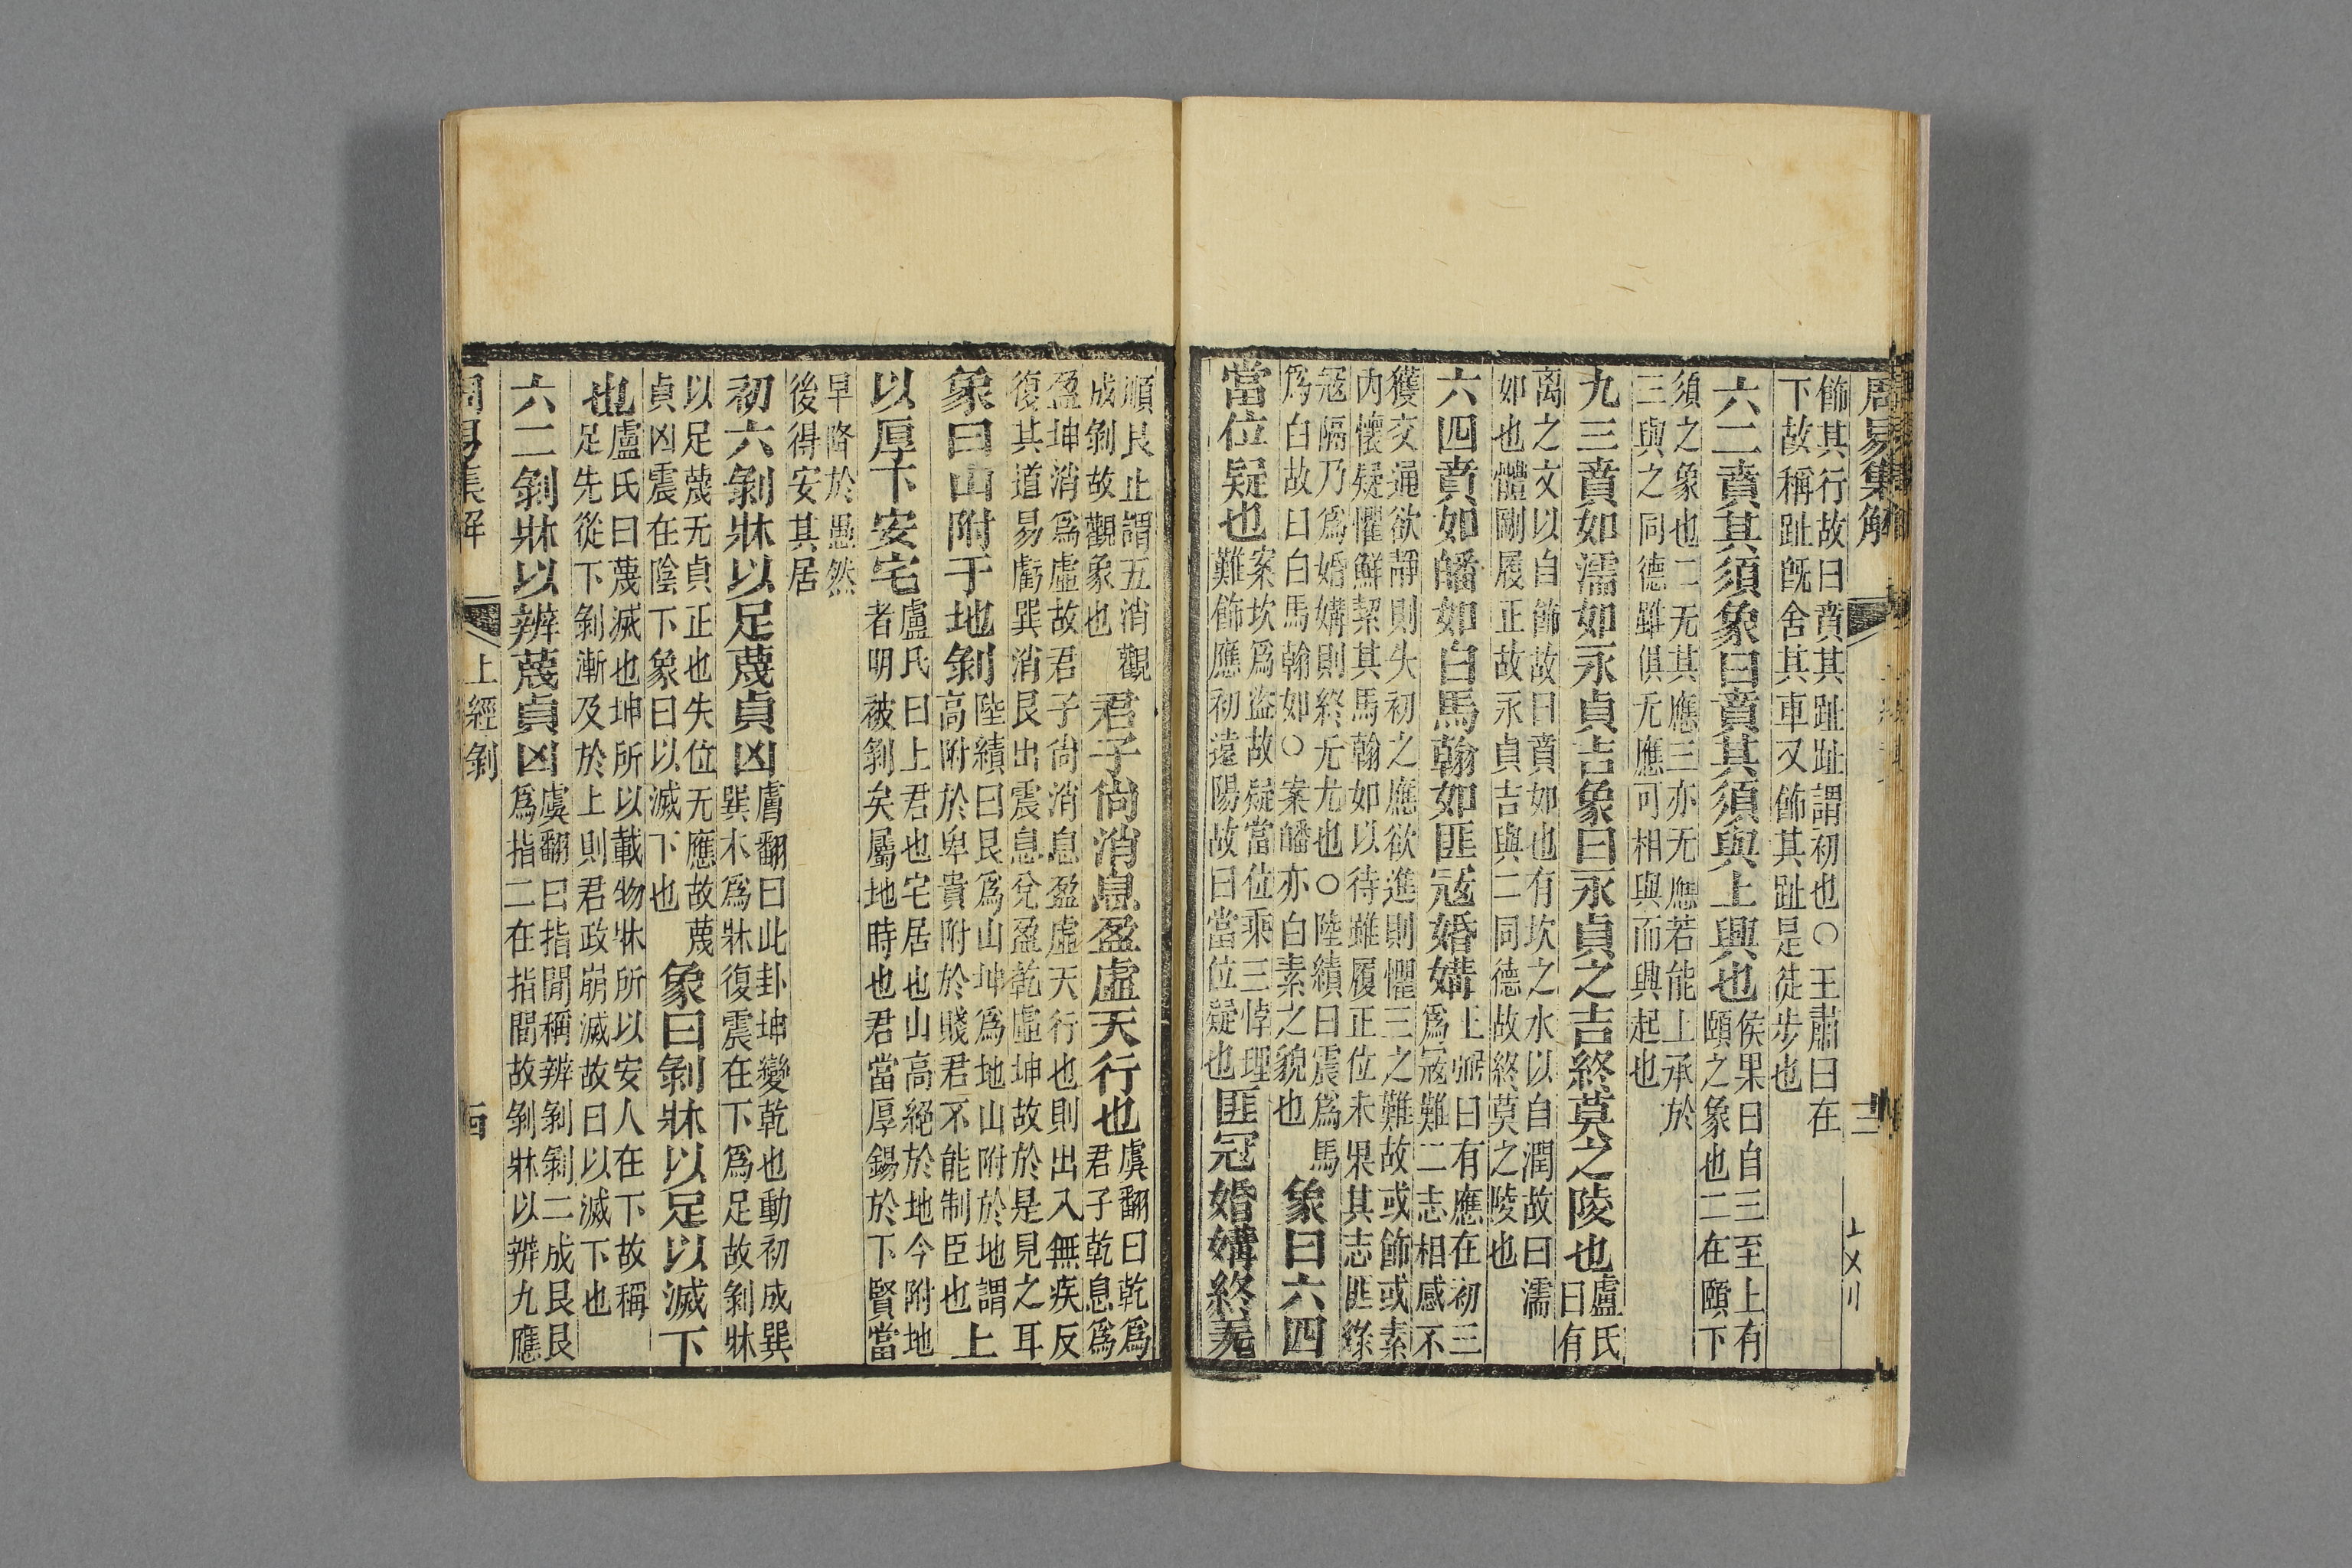 周易集解
三
飾其行故曰賁其趾趾謂初也○王肅曰在
下故稱趾旣舍其車又飾其趾是徒步也
六二賁其須象曰賁其須與上興也侯果曰自三至上有
頤之象也二在頤下
須之象也二无其應三亦无應若能上承於
三與之同德雖俱无應可相與而興起也
九三賁如濡如永貞吉象曰永貞之吉終莫之陵也盧氏
曰有
离之文以自飾故曰賁如也有坎之水以自潤故曰濡
如也體剛履正故永貞吉與二同德故終莫之陵也
六四賁如皤如白馬翰如匪寇婚媾王弼曰有應在初三
爲寇難二志相感不
獲交通欲靜則失初之應欲進則懼三之難故或飾或素
內懷疑懼鮮絜其馬翰如以待雖履正位未果其志匪緣
寇隔乃爲婚媾則終无尤也○陸績曰震爲馬
爲白故曰白馬翰如○案皤亦白素之貌也
象曰六四
當位疑也案坎爲盜故疑當位乘三悖理
難飾應初遠陽故曰當位疑也
匪寇婚媾終无
順艮止謂五消觀
成剝故觀象也
君子尙消息盈虛天行也虞翻曰乾爲
君子乾息爲
盈坤消爲虛故君子尙消息盈虛天行也則出入無疾反
復其道易虧巽消艮出震息兌盈乾虛坤故於是見之耳
象曰山附于地剝陸績曰艮爲山坤爲地山附於地謂
高附於卑貴附於賤君不能制臣也
上
以厚下安宅盧氏曰上君也宅居也山高絕於地今附地
者明被剝矣屬地時也君當厚錫於下賢當
早降於愚然
後得安其居
初六剝牀以足蔑貞凶虞翻曰此卦坤變乾也動初成巽
巽木爲牀復震在下爲足故剝牀
以足蔑无貞正也失位无應故蔑
貞凶震在陰下象曰以滅下也
象曰剝牀以足以滅下
也盧氏曰蔑滅也坤所以載物牀所以安人在下故稱
足先從下剝漸及於上則君政崩滅故曰以滅下也
六二剝牀以辨蔑貞凶虞翻曰指閒稱辨剝剝二成艮艮
爲指二在指閒故剝牀以辨九應
周易集解
上經剝